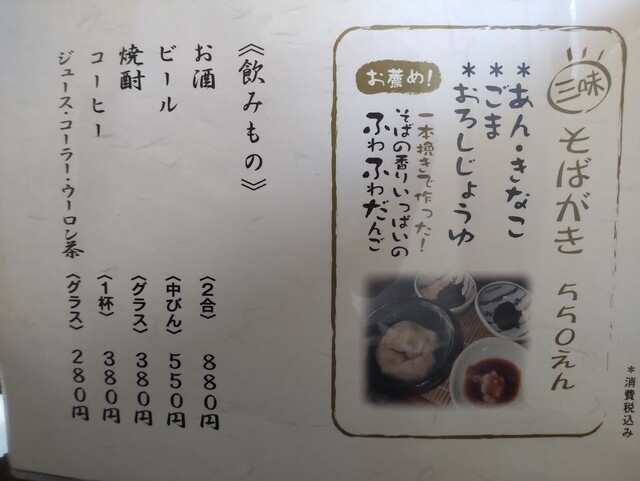 三味 そばがき 550えん
*あん・きなこ
*ごま
*おろしじょうゆ
お薦め!
一本挽きで作った!
そばの香りいっぱいの
ふわふわだんご
*消費税込み
《飲みもの》
お酒 〈2合〉 880円
ビール 〈中びん〉 550円
焼酎 〈グラス〉 380円
コーヒー 〈1杯〉 380円
ジュース・コーラ・ウーロン茶 〈グラス〉 280円